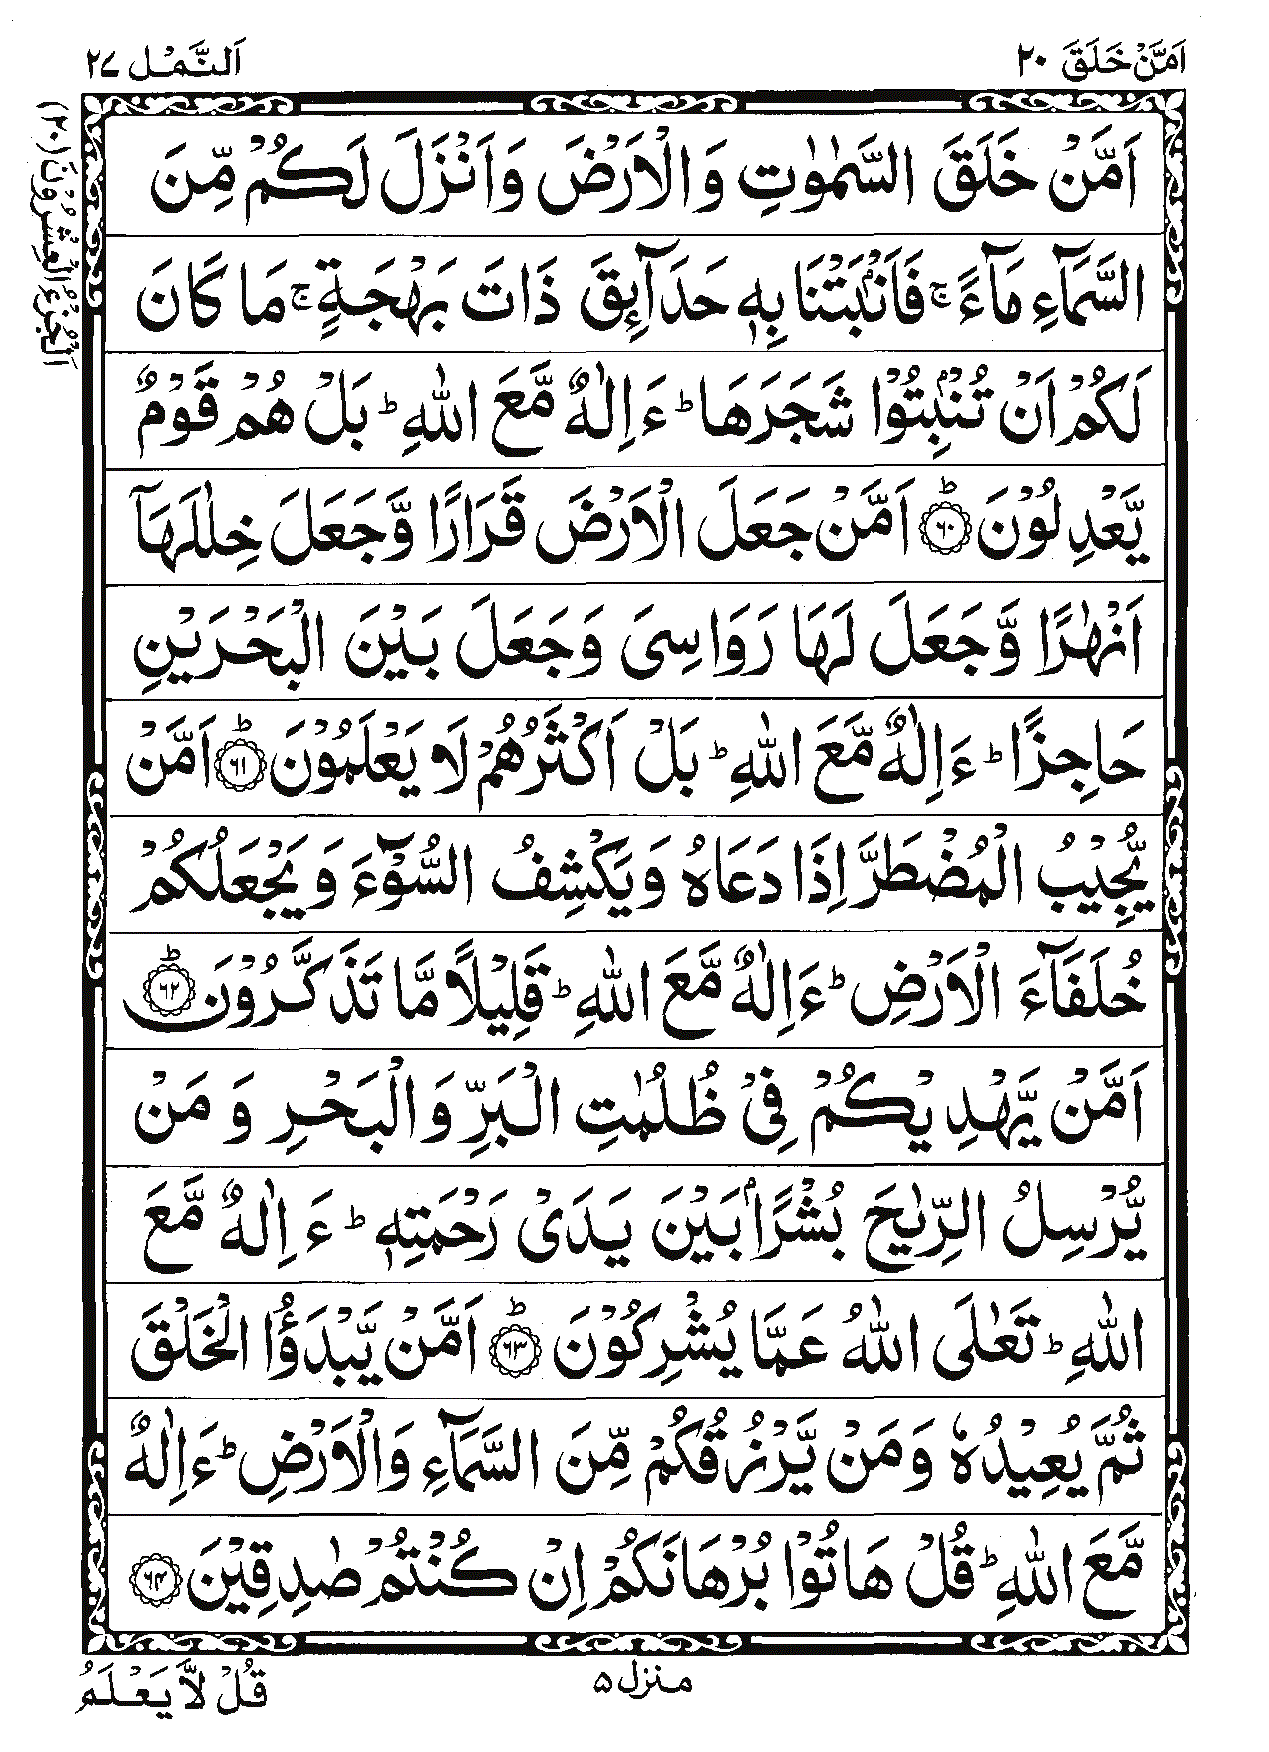 اَمَّنْ خَلَقَ ٢٠
اَلنَّمْل ٢٧
اَلْجُزْءُ الْعِشْرُوْنَ (٢٠)
اَمَّنْ خَلَقَ السَّمٰوٰتِ وَالْاَرْضَ وَاَنْزَلَ لَكُمْ مِّنَ
السَّمَآءِ مَآءً ۚ فَاَنْۢبَتْنَا بِهٖ حَدَآئِقَ ذَاتَ بَهْجَةٍ ۚ مَا كَانَ
لَكُمْ اَنْ تُنْۢبِتُوْا شَجَرَهَا ؕ ءَاِلٰهٌ مَّعَ اللّٰهِ ؕ بَلْ هُمْ قَوْمٌ
يَّعْدِلُوْنَ ؕ﴿٦٠﴾ اَمَّنْ جَعَلَ الْاَرْضَ قَرَارًا وَّجَعَلَ خِلٰلَهَاۤ
اَنْهٰرًا وَّجَعَلَ لَهَا رَوَاسِىَ وَجَعَلَ بَيْنَ الْبَحْرَيْنِ
حَاجِزًا ؕ ءَاِلٰهٌ مَّعَ اللّٰهِ ؕ بَلْ اَكْثَرُهُمْ لَا يَعْلَمُوْنَ ؕ﴿٦١﴾ اَمَّنْ
يُّجِيْبُ الْمُضْطَرَّ اِذَا دَعَاهُ وَيَكْشِفُ السُّوْٓءَ وَيَجْعَلُكُمْ
خُلَفَآءَ الْاَرْضِ ؕ ءَاِلٰهٌ مَّعَ اللّٰهِ ؕ قَلِيْلًا مَّا تَذَكَّرُوْنَ ؕ﴿٦٢﴾
اَمَّنْ يَّهْدِيْكُمْ فِىْ ظُلُمٰتِ الْبَرِّ وَالْبَحْرِ وَ مَنْ
يُّرْسِلُ الرِّيٰحَ بُشْرًۢا بَيْنَ يَدَىْ رَحْمَتِهٖ ؕ ءَ اِلٰهٌ مَّعَ
اللّٰهِ ؕ تَعٰلَى اللّٰهُ عَمَّا يُشْرِكُوْنَ ؕ﴿٦٣﴾ اَمَّنْ يَّبْدَؤُا الْخَلْقَ
ثُمَّ يُعِيْدُهٗ وَمَنْ يَّرْزُقُكُمْ مِّنَ السَّمَآءِ وَالْاَرْضِ ؕ ءَاِلٰهٌ
مَّعَ اللّٰهِ ؕ قُلْ هَاتُوْا بُرْهَانَكُمْ اِنْ كُنْتُمْ صٰدِقِيْنَ ﴿٦٤﴾
منزل ۵
قُلْ لَّا يَعْلَمُ